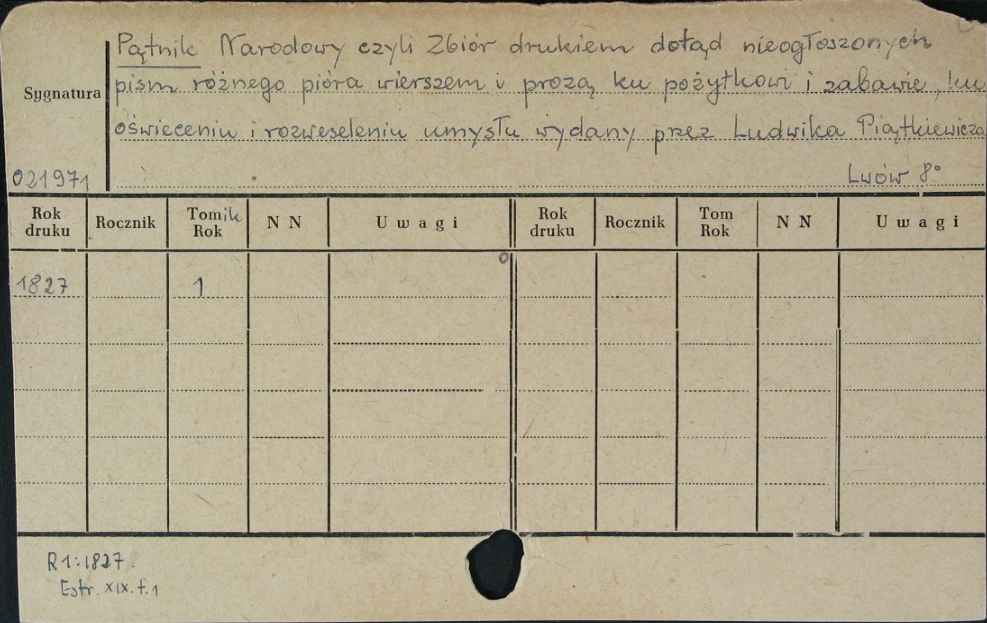 Pątnik Narodowy czyli Zbiór drukiem dotąd nieogłoszonych
Sygnatura pism różnego pióra wierszem i prozą, ku pożytkowi i zabawie, ku
oświeceniu i rozweseleniu umysłu wydany przez Ludwika Piątkiewicza
021971 Lwów 8°
Rok druku Rocznik Tomik Rok N N Uwagi Rok druku Rocznik Tom Rok N N Uwagi
1827 1
R 1:1827.
Estr. XIX. t. 1